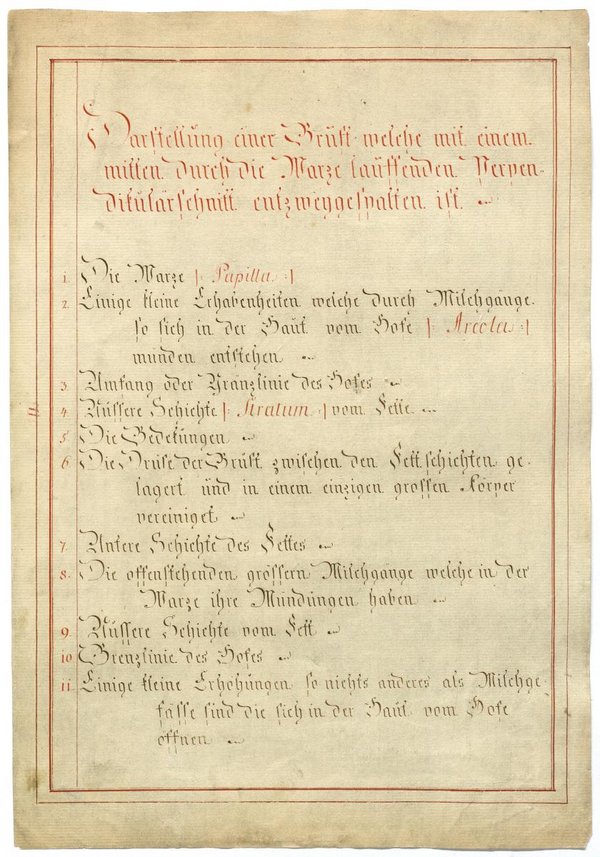 Darstellung einer Brust welche mit einem
mitten durch die Warze lauffenden Perpen-
dikularschnitt entzweygespalten ist.
1. Die Warze |: Papilla :|
2. Einige kleine Erhabenheiten welche durch Milchgänge
so sich in der Haut vom Hofe |: Areola :|
munden entstehen
3. Umfang oder Gränzlinie des Hofes
4. Äussere Schichte |: Stratum :| vom Fette
5. Die Bedekungen
6. Die Drüse der Brust zwischen den Fettschichten ge-
lagert und in einem einzigen grossen Körper
vereiniget
7. Untere Schichte des Fettes
8. Die offenstehenden grössern Milchgänge welche in der
Warze ihre Mündungen haben
9. Äussere Schichte vom Fett
10. Grenzlinie des Hofes
11. Einige kleine Erhöhungen so nichts anderes als Milchge-
fässe sind die sich in der Haut vom Hofe
öffnen